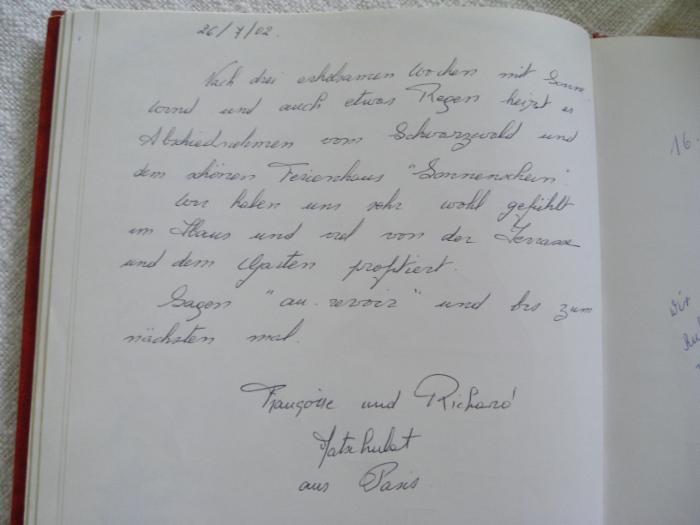 26/7/02.
Nach drei erholsamen Wochen mit Sonne
Wind und auch etwas Regen heizst es
Abschiednehmen vom Schwarzwald und
dem schönen Ferienhaus "Sonnenschein".
Wir haben uns sehr wohl gefühlt
im Haus und viel von der Terrasse
und dem Garten profitiert.
Sagen "au-revoir" und bis zum
nächsten mal.
Françoise und Richard
aus Paris
16.
Wir